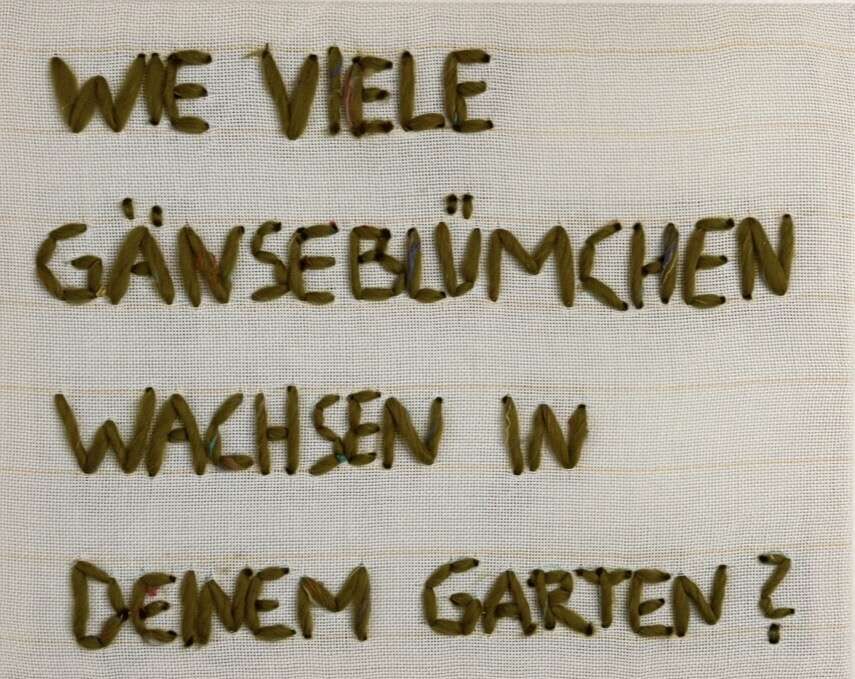 WIE VIELE
GÄNSEBLÜMCHEN
WACHSEN IN
DEINEM GARTEN?